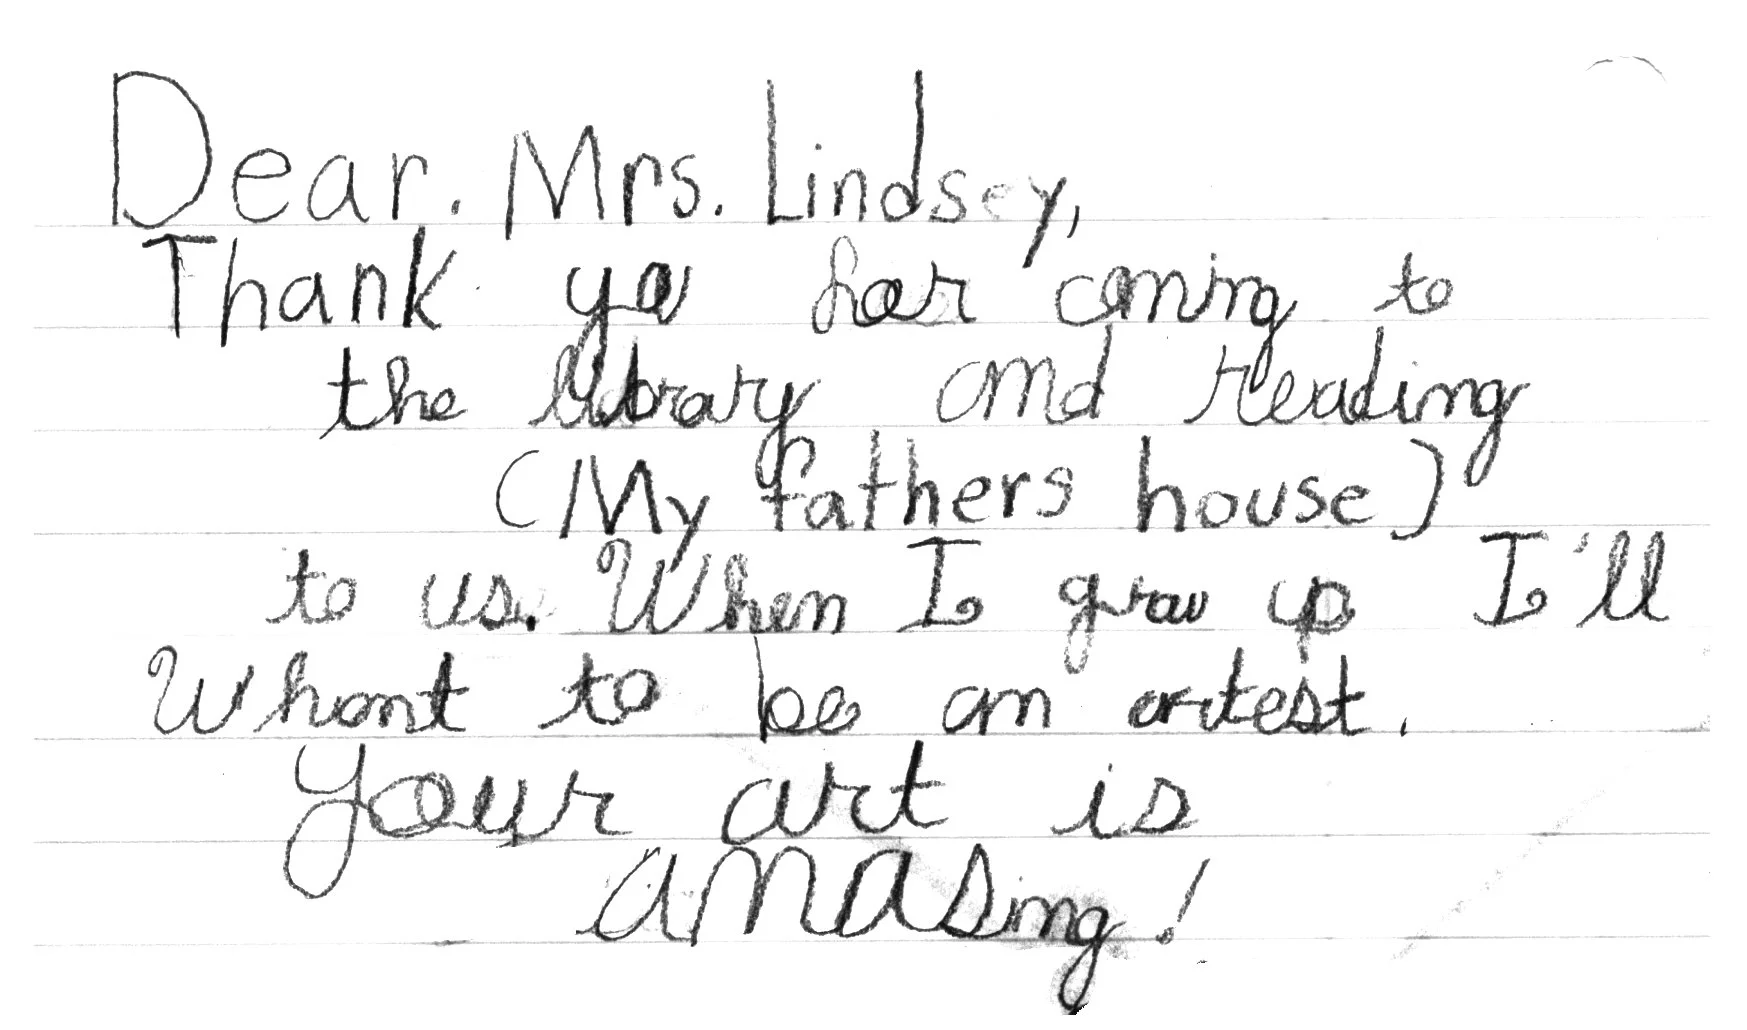 Dear. Mrs. Lindsey,
Thank you for coming to
the library and reading
(My fathers house)
to us. When I grow up I'll
Whant to be an artest.
Your art is
amasing!